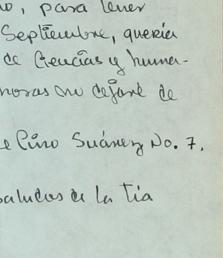 o, para tener
Septiembre, quería
de Ciencias y huma-
horas no dejaré de
e Pino Suárez No. 7,
saludos de la tía